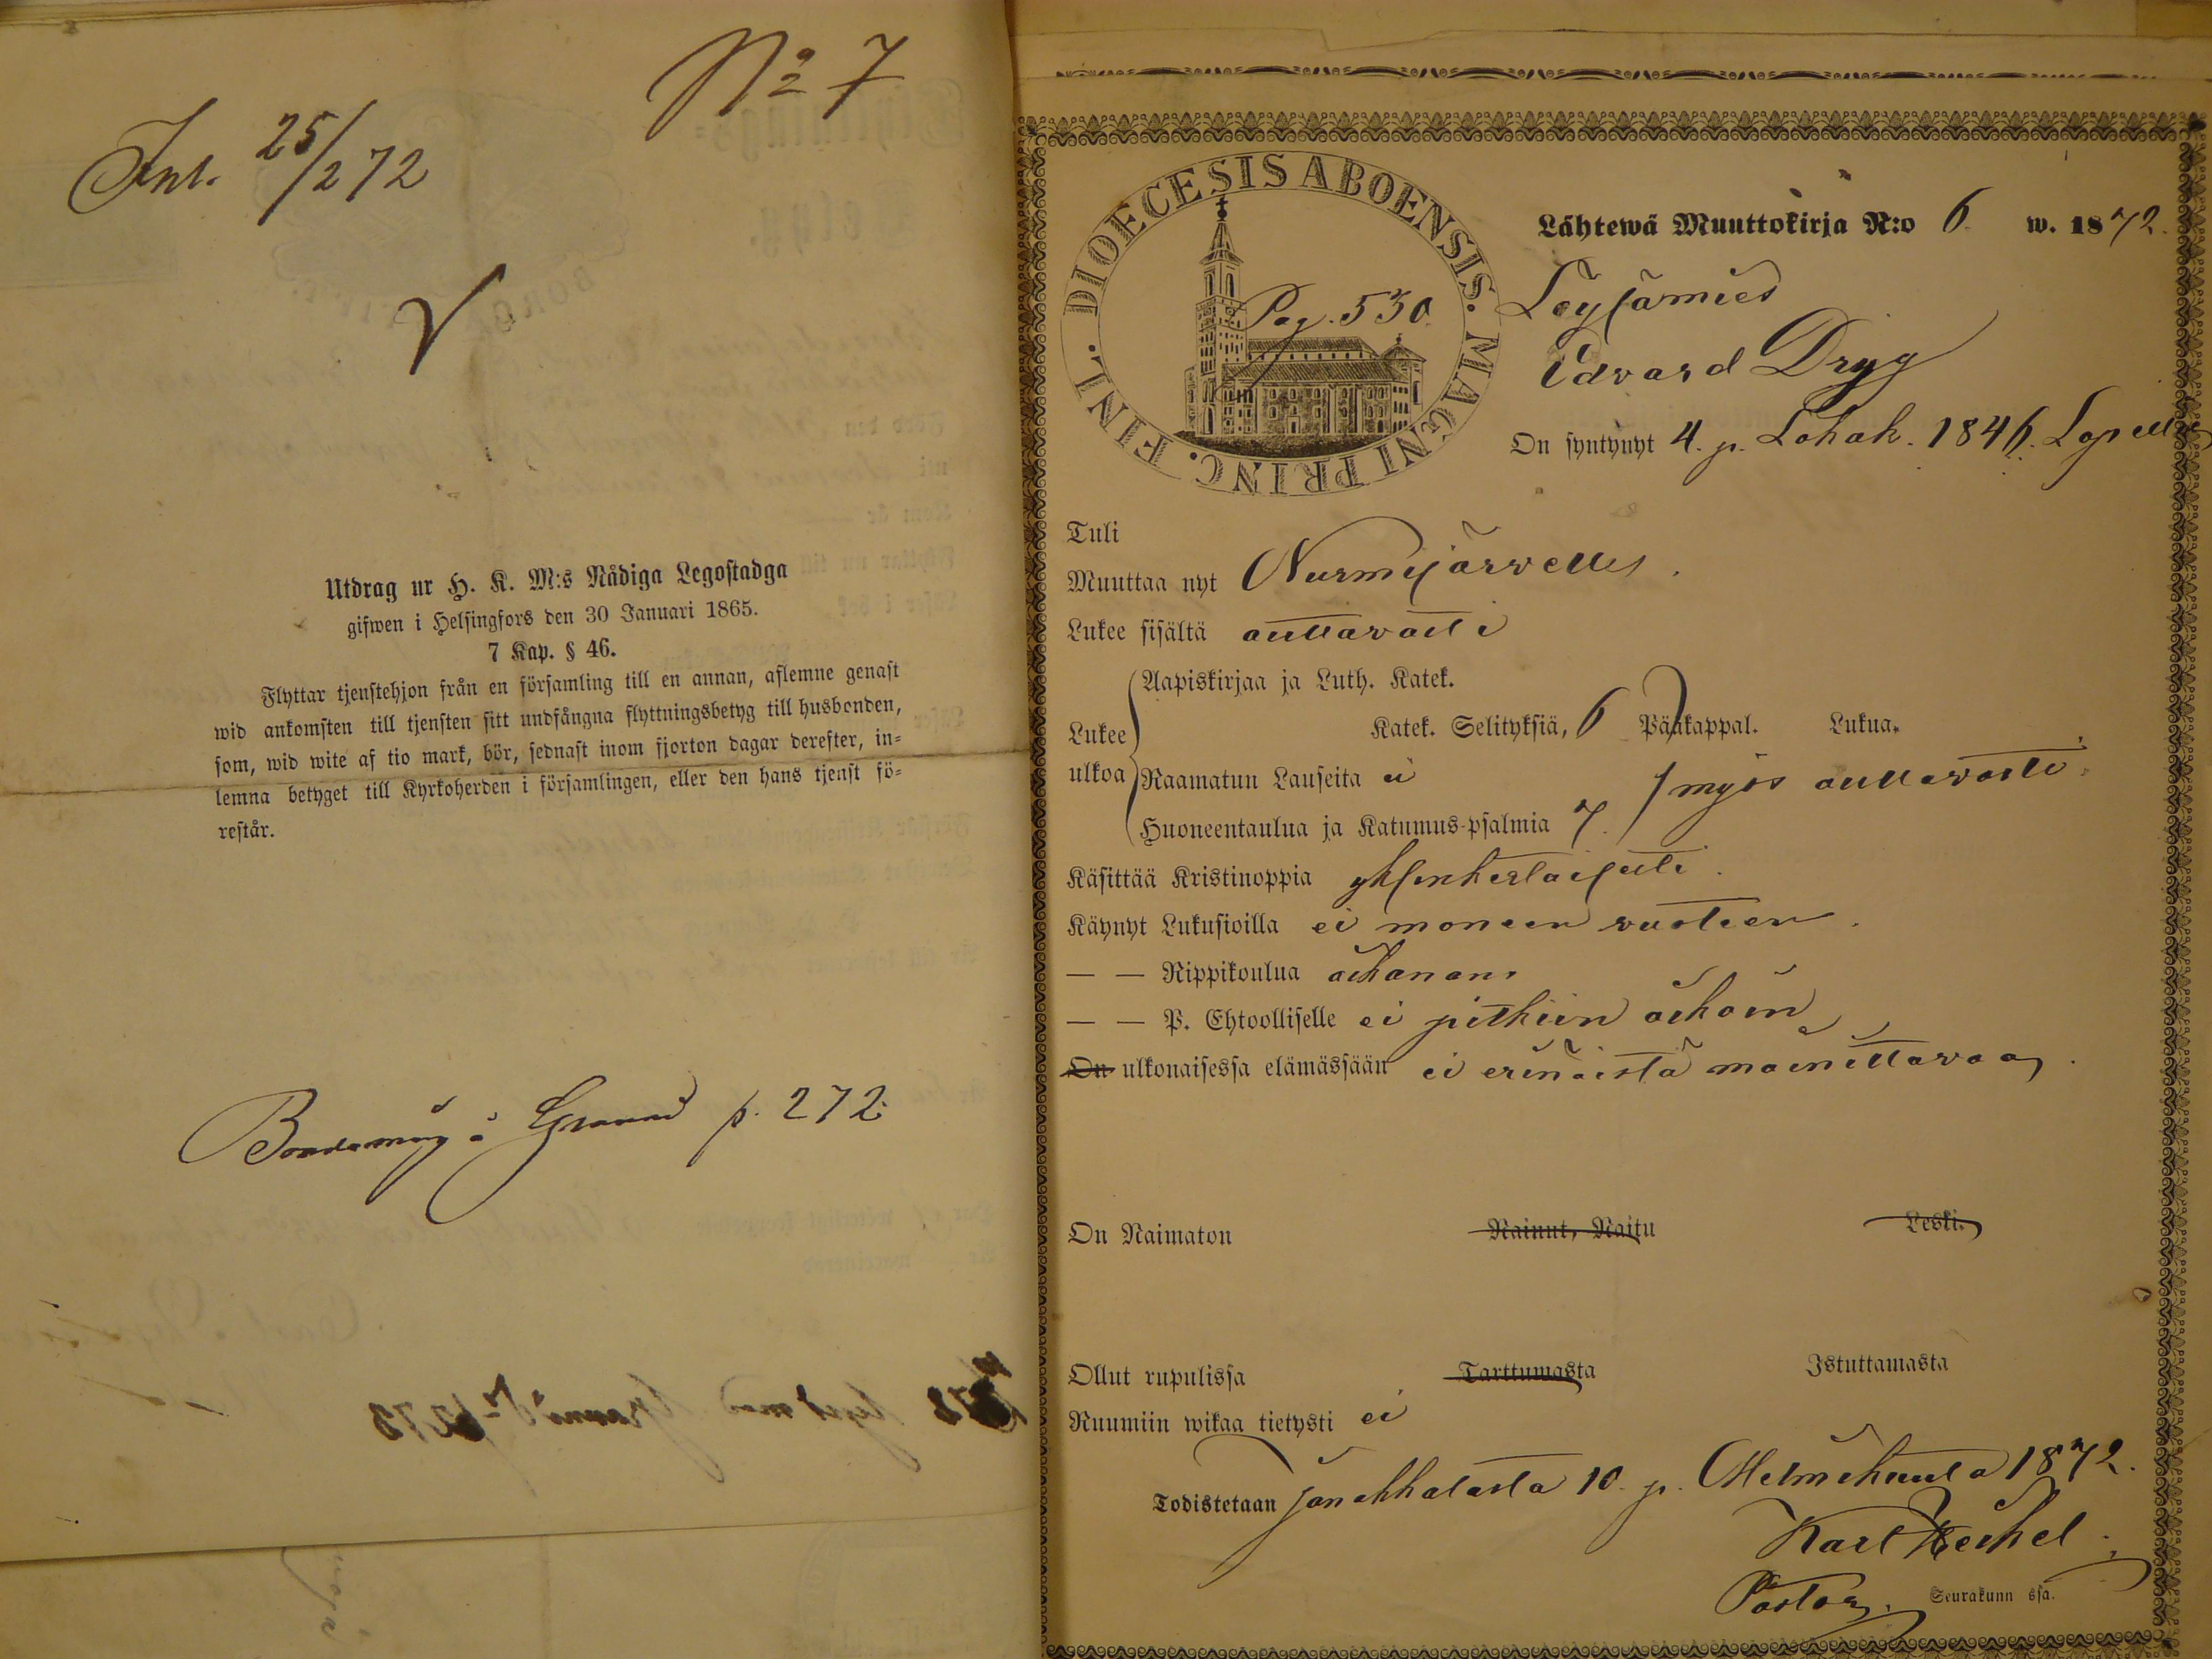 Nº 7
Inl. 25/2 72
Utdrag ur H. K. M:s Nådiga Legostadga
gifwen i Helsingfors den 30 Januari 1865.
7 Kap. § 46.
Flyttar tjenstehjon från en församling till en annan, aflemne genast
wid ankomsten till tjensten sitt undfångna flyttningsbetyg till husbonden,
som, wid wite af tio mark, bör, sednast inom fjorton dagar derefter, in-
lemna betyget till Kyrkoherden i församlingen, eller den hans tjenst fö-
restår.
p. 272
DIOECESIS ABOENSIS. MAGNI PRINC. FINL.
Pag. 530.
Lähtewä Muuttokirja N:o 6 w. 1872.
Löysämies
Edvard Dryg
On syntynyt 4. p. Lokak. 1846. Lopella
Tuli
Muuttaa nyt Nurmijärvelle.
Lukee sisältä auttavasti
Aapiskirjaa ja Luth. Katek.
Lukee ulkoa
Katek. Selityksiä, 6 Pääkappal. Lukua.
Raamatun Lauseita ei
myös auttavasti.
Huoneentaulua ja Katumus-psalmia 7.
Käsittää Kristinoppia yksinkertaisesti.
Käynyt Lukusioilla ei moneen vuoteen.
— — Rippikoulua aikanans
— — P. Ehtoolliselle ei pitkiin aikoin
On ulkonaisessa elämässään ei erinäistä mainittavaa.
On Naimaton Nainut, Naitu Leski.
Ollut rupulissa Tarttumasta Istuttamasta
Ruumiin wikaa tietysti ei
Todistetaan Janakkalasta 10. p. Helmikuuta 1872.
Karl Heikel.
Pastor. Seurakunn ssa.